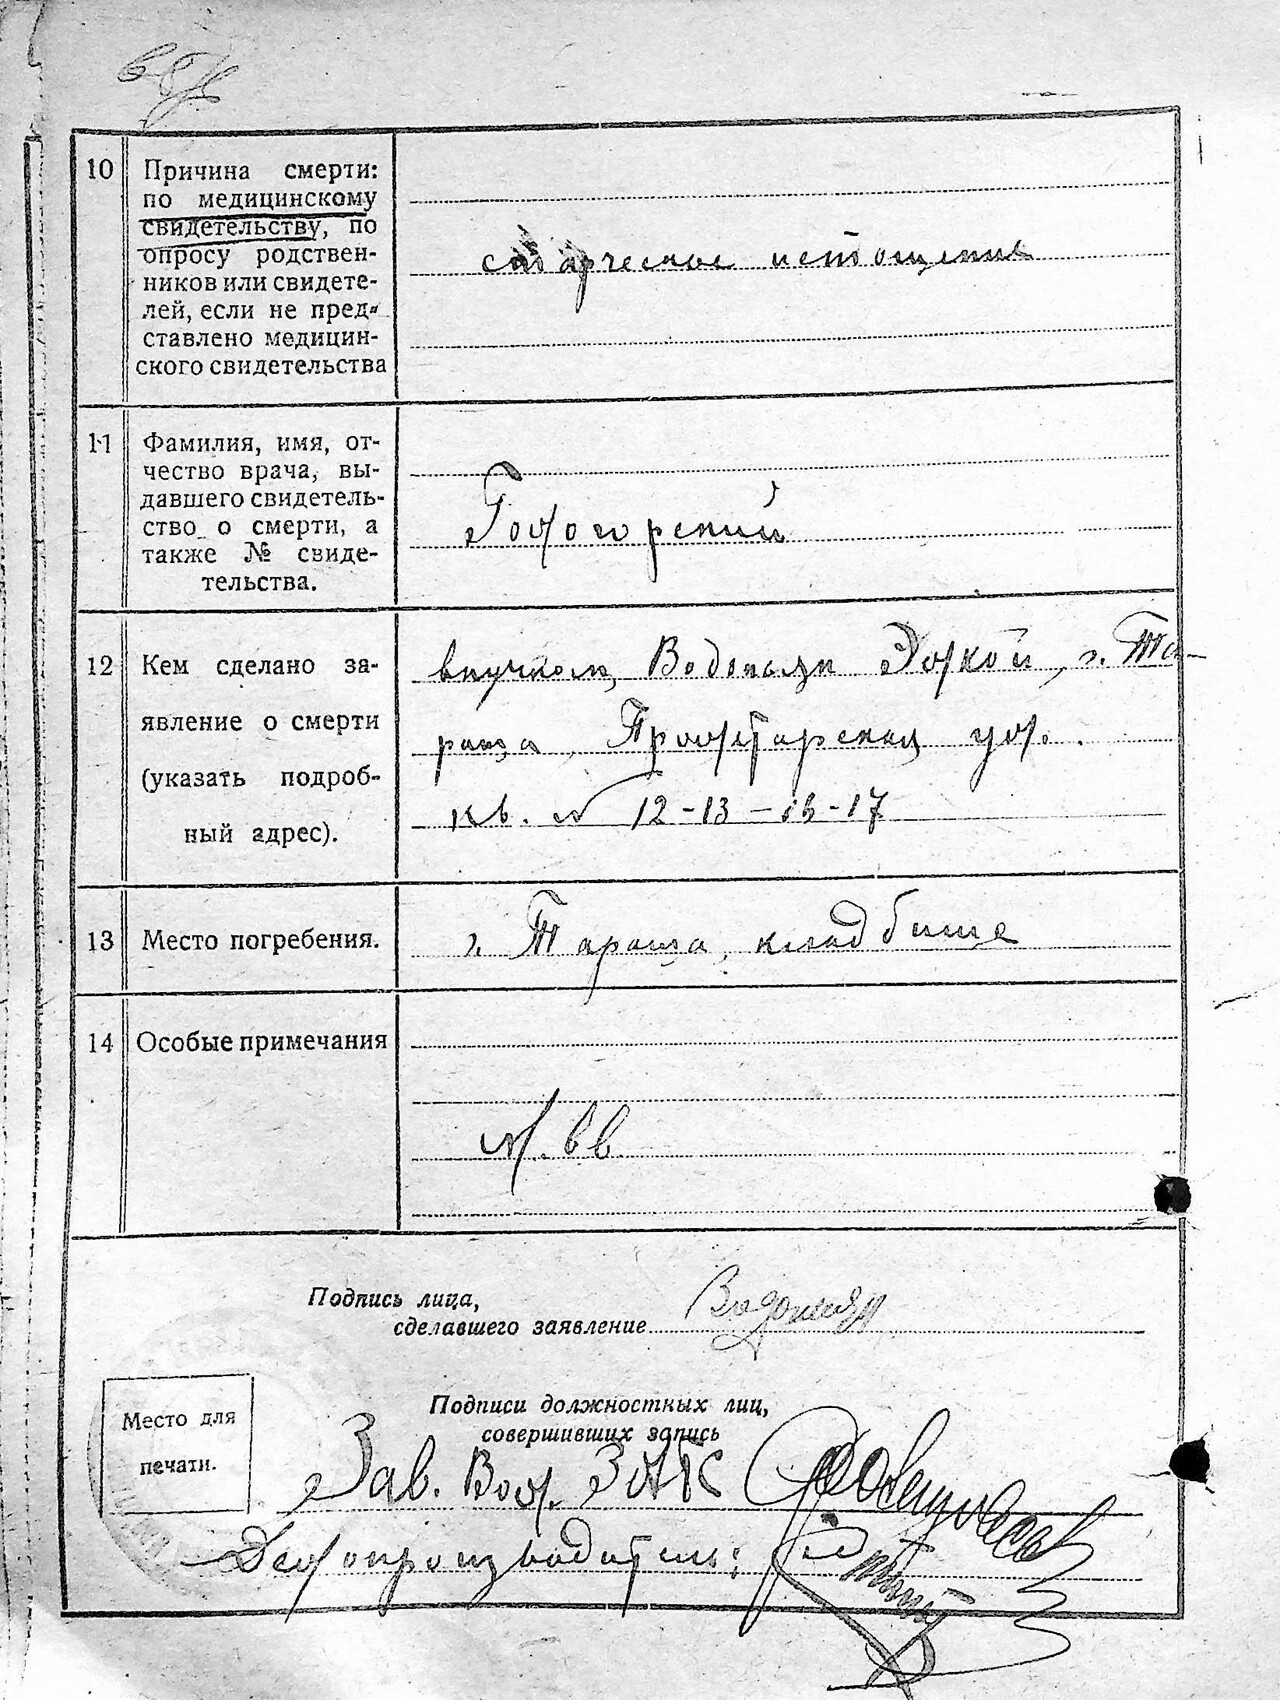 10
Причина смерти:
по медицинскому
свидетельству, по
опросу родствен-
ников или свидете-
лей, если не пред-
ставлено медицин-
ского свидетельства
старческое истощение
11
Фамилия, имя, от-
чество врача, вы-
давшего свидетель-
ство о смерти, а
также № свиде-
тельства.
12
Кем сделано за-
явление о смерти
(указать подроб-
ный адрес).
внучкой, Водопьян г. Та-
раща, Пролетарская ул.
кв. № 12-13-16-17
13
Место погребения.
г. Тараща, кладбище
14
Особые примечания
Подпись лица,
сделавшего заявление
Водопьян
Место для
печати.
Подписи должностных лиц,
совершивших запись
Зав. Вол. ЗАГС
Делопроизводитель: